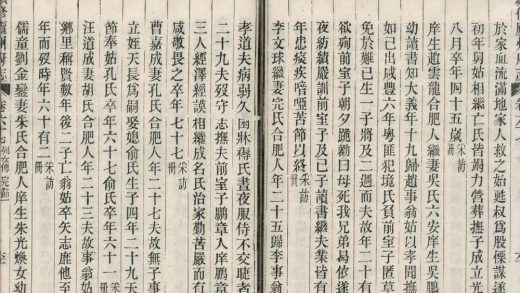 於家血流滿地家人救之始甦叔爲股慄謀遂
初年舅姑相繼亡氏皆竭力營葬撫子成立光
八月卒年四十五歲采訪冊
庠生趙雲龍合肥人繼妻吳氏六安庠生吳鵬
幼讀書知大義年十九歸趙事翁姑以孝聞撫
如己出咸豐六年粵匪犯境氏負前室子匿草
免於難已生一子將及二週而夫故年二十有
欲殉前室子朝夕跪勸曰母死我兄弟曷依遂
夜紡績嚴訓前室子及己子讀書繼夫業皆有
年患疫疾喑啞苦節以終采訪冊
李文球繼妻完氏合肥人年二十五歸李事翁
孝道夫病弱久困牀蓐氏晝夜服侍不交睫者
二十九夫歿守志撫夫前室子鵬章入庠鵬章
三人經澤經謨相繼成名氏治家勤苦嚴而有
咸敬畏之卒年七十七采訪冊
曹嘉成妻孔氏合肥人年二十七夫故無子事
立姪天長爲嗣娶媳俞氏生子四年二十九天
節奉姑孔氏卒年六十七俞氏卒年六十一采訪冊
汪道成妻胡氏合肥人年二十三夫故事翁姑
鄉里稱賢數年後二子亡翁姑卒矢志靡他至
年而歿時年六十有二采訪冊
儒童劉金鑾妻朱氏合肥人庠生朱光煥女幼